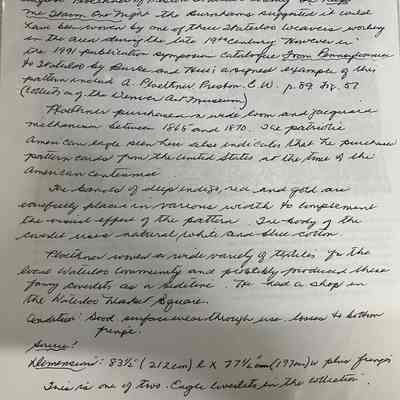 The Storm One Night the Burnhams suggested it could
have been woven by one of three Waterloo weavers working
in the area during the late 19th century. However in
the 1991 publication symposium catalogue From Pennsylvania
to Waterloo by Burke and a signed example of this
pattern included A. Ploethner Preston C.W. p. 89 Fig. 57
(collection of the Denver Art Museum)
Ploethner purchased a wide loom and jacquard
mechanism between 1865 and 1870. The patriotic
American eagle seen here also indicates that he purchase
pattern cards from the United States at the time of the
American centennial
The bands of deep indigo, red, and gold are
carefully placed in various width to complement
the visual effect of the pattern. The body of the
coverlet uses natural white and blue cotton.
Ploethner wove a wide variety of textiles for the
local Waterloo community and possibly produced these
fancy coverlets as a sideline. He had a shop in
the Waterloo Market Square.
Condition: Good surface wear through use losses to bottom
fringe.
Source?
Dimensions: 83½" (212cm) L x 77½" (197cm) w plus fringe
This is one of two Eagle coverlets in the collection.